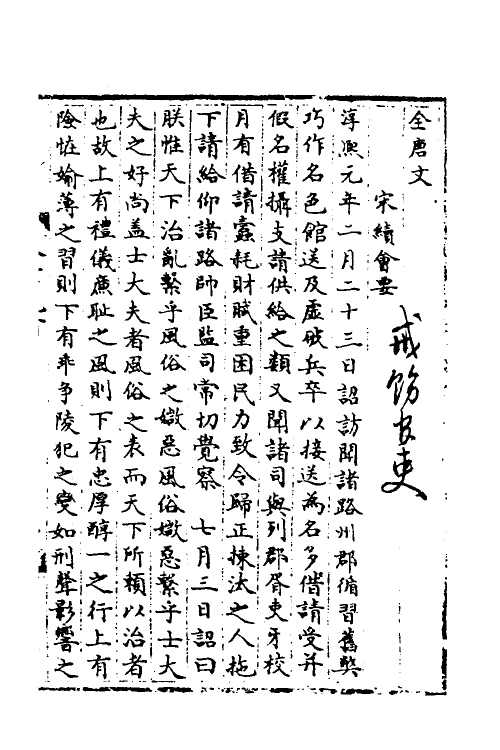 全唐文
宋續會要
戒飭官吏
淳熙元年二月二十三日詔訪聞諸路州郡循習舊弊
巧作名色館送及虛破兵卒以接送為名多借請受并
假名權攝支請供給之類又聞諸司與列郡胥吏牙校
月有借請蠹耗財賦重困民力致令歸正揀汰之人拖
下請給仰諸路帥臣監司常切覺察 七月三日詔曰
朕惟天下治亂繫乎風俗之媺惡風俗媺惡繫乎士大
夫之好尚盖士大夫者風俗之表而天下所賴以治者
也故上有禮儀廉耻之風則下有忠厚醇一之行上有
險怪婾薄之習則下有乖争陵犯之變如刑聲影響之